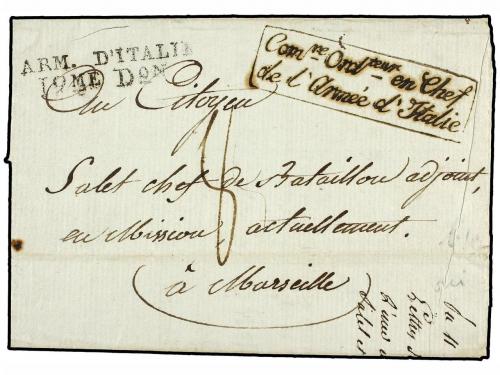 ARM. D'ITALIE
10ME DON
Com.re Ord.teur en Chef
de l'Armée d'Italie
Au Citoyen
Salet chef de Bataillon adjoint,
en Mission, actuellement.
à Marseille